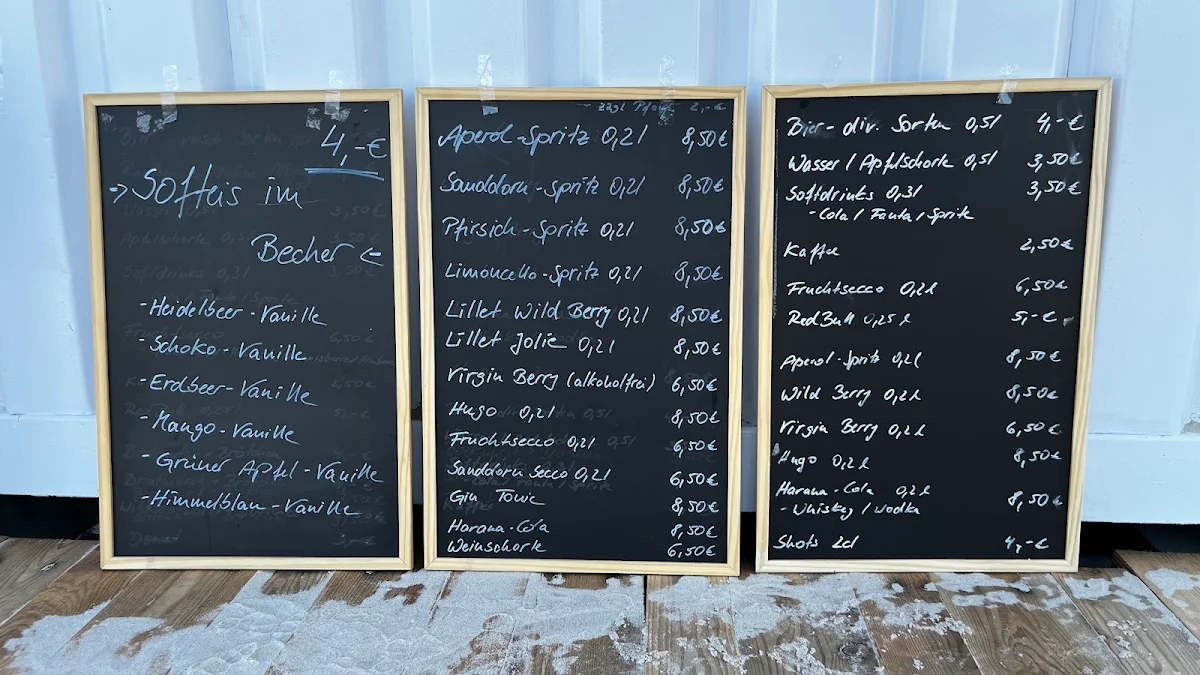 4,-€
-> Softeis im
Becher <-
- Heidelbeer-Vanille
- Schoko-Vanille
- Erdbeer-Vanille
- Mango-Vanille
- Grüner Apfel-Vanille
- Himmelblau-Vanille
zzgl. Pfand 2,-€
Aperol-Spritz 0,2l 8,50€
Sanddorn-Spritz 0,2l 8,50€
Pfirsich-Spritz 0,2l 8,50€
Limoncello-Spritz 0,2l 8,50€
Lillet Wild Berry 0,2l 8,50€
Lillet Jolie 0,2l 8,50€
Virgin Berry (alkoholfrei) 6,50€
Hugo 0,2l 8,50€
Fruchtsecco 0,2l 6,50€
Sanddorn Secco 0,2l 6,50€
Gin Tonic 8,50€
Havana-Cola 8,50€
Weinschorle 6,50€
Bier-div. Sorten 0,5l 4,-€
Wasser/Apfelschorle 0,5l 3,50€
Softdrinks 0,3l 3,50€
- Cola/Fanta/Sprite
Kaffee 2,50€
Fruchtsecco 0,2l 6,50€
RedBull 0,25l 5,-€
Aperol-Spritz 0,2l 8,50€
Wild Berry 0,2l 8,50€
Virgin Berry 0,2l 6,50€
Hugo 0,2l 8,50€
Havana-Cola 0,2l 8,50€
- Whiskey/Wodka
Shots 2cl 4,-€